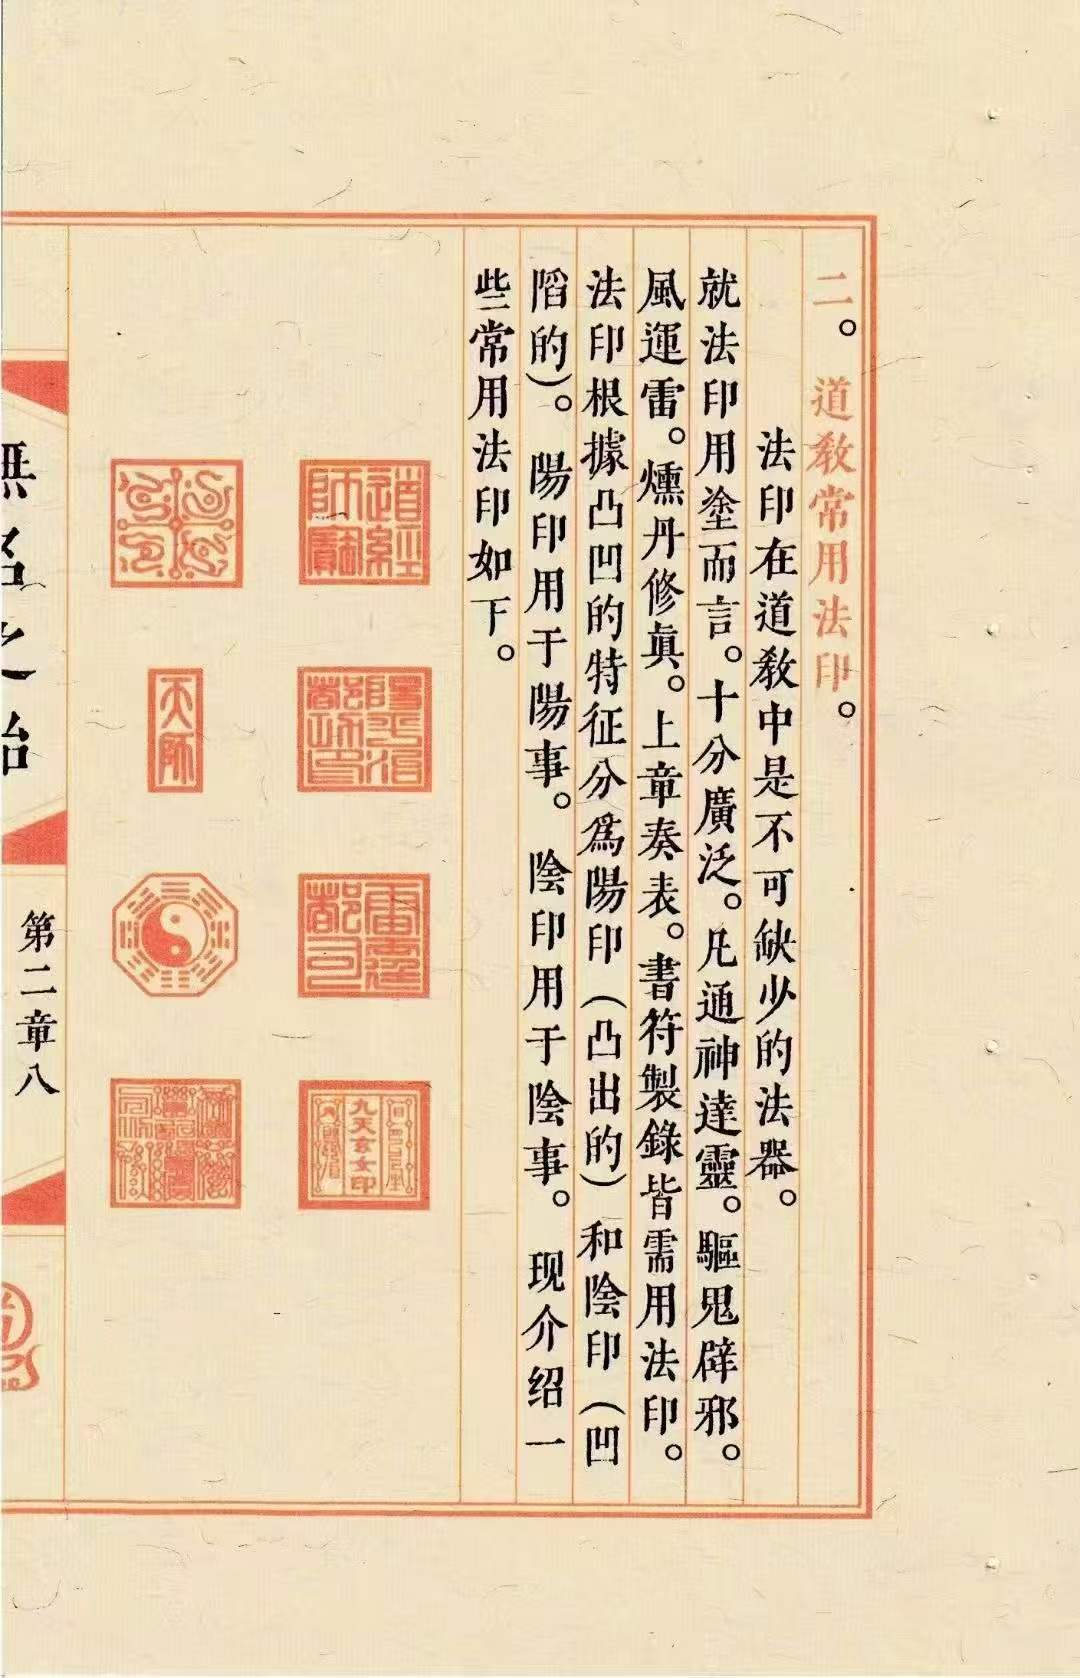 二。道敎常用法印。
法印在道敎中是不可缺少的法器。
就法印用塗而言。十分廣泛。凡通神達靈。驅鬼辟邪。
風運雷。燻丹修眞。上章奏表。書符製錄皆需用法印。
法印根據凸凹的特征分爲陽印（凸出的）和陰印（凹
陷的）。陽印用于陽事。陰印用于陰事。现介绍一
些常用法印如下。
道經師寶
陽平治都功印
雷霆都司
九天玄女印
天師
無名之始
第二章八